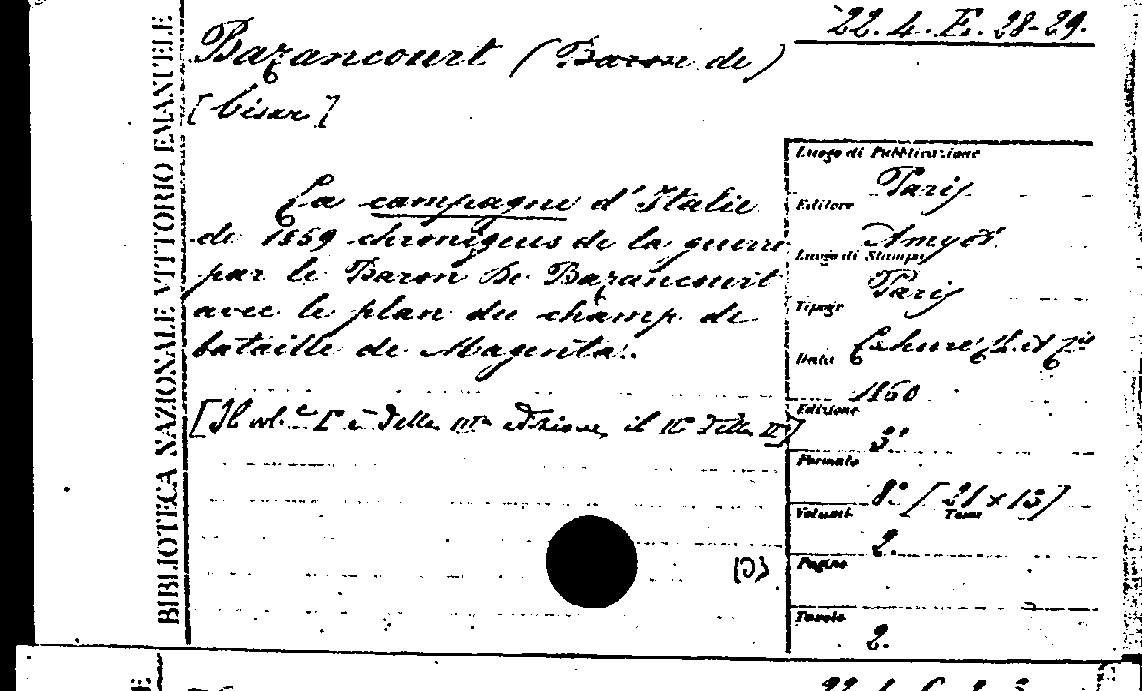 BIBLIOTECA NAZIONALE VITTORIO EMANUELE
22.4.E.28-29.
Bazancourt (Baron de)
[César]
La campagne d'Italie
de 1859 chroniques de la guerre
par le Baron De Bazancourt
avec le plan du champ de
bataille de Magenta.
[Il vol.e I è della IIIa edizione, il II della II]
Luogo di Pubblicazione
Paris
Editore
Amyot
Luogo di Stampa
Paris
Tipogr.
Lahure
Data
1860
Edizione
3ª
Formato
8° [21 x 13]
Volumi
Tomi
2.
Pagine
Tavole
2.